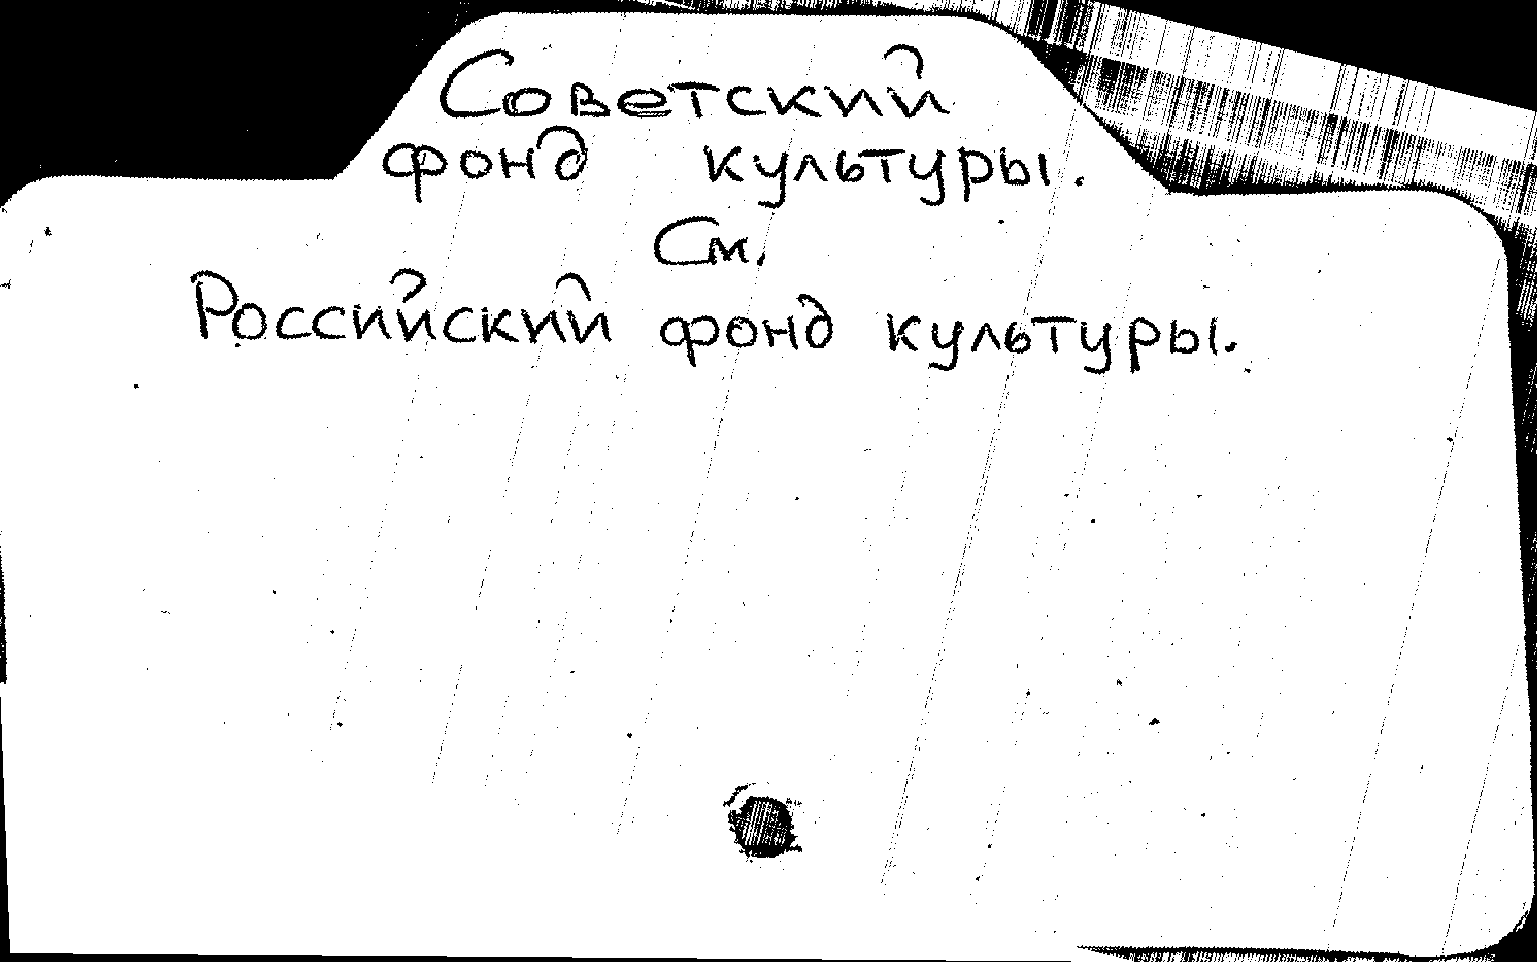 Советский
фонд культуры.
См.
Российский фонд культуры.